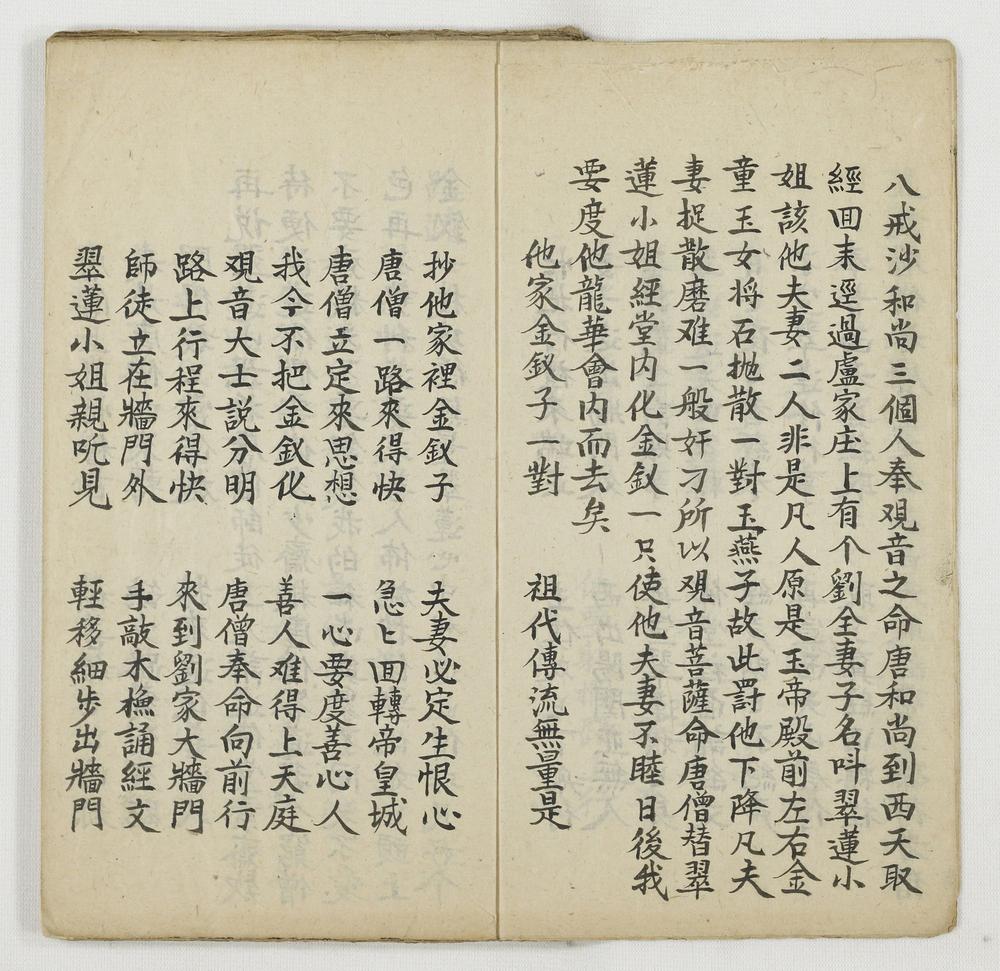 八戒沙和尚三個人奉观音之命唐和尚到西天取
經囬来逕過盧家庄上有个劉全妻子名呌翠蓮小
姐該他夫妻二人非是凡人原是玉帝殿前左右金
童玉女将石抛散一對玉燕子故此罸他下降凡夫
妻捉散磨难一般奸刁所以观音菩薩命唐僧替翠
蓮小姐經堂内化金釵一只使他夫妻不睦日後我
要度他龍華會内而去矣
他家金釵子一對　祖代傳流無量是
抄他家裡金釵子　夫妻必定生恨心
唐僧一路來得快　急〻囬轉帝皇城
唐僧立定來思想　一心要度善心人
我今不把金釵化　善人难得上天庭
观音大士説分明　唐僧奉命向前行
路上行程來得快　來到劉家大牆門
師徒立在牆門外　手敲木樵誦經文
翠蓮小姐親听見　輕移細步出牆門